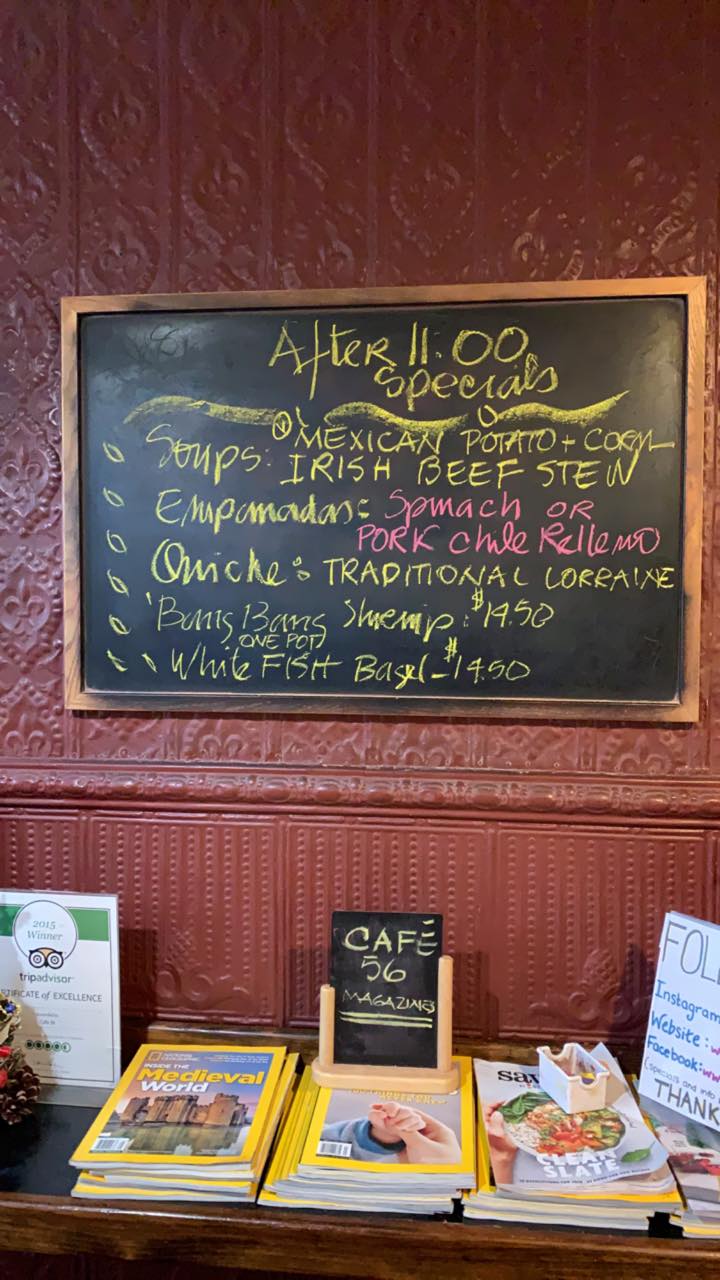 After 11:00
Specials
Soups: MEXICAN POTATO + CORN
IRISH BEEF STEW
Empanadas: Spinach OR
PORK Chile Relleno
Quiche: TRADITIONAL LORRAINE
Bang Bang Shrimp: $14.50
(ONE POT)
White FISH Bagel - $14.50
2015
Winner
tripadvisor
CERTIFICATE of EXCELLENCE
CAFÉ
56
MAGAZINES
NATIONAL GEOGRAPHIC
INSIDE THE
Medieval
World
CLEAN
SLATE
FOLL
Instagram
Website: w
Facebook: ww
(specials and info
THANK